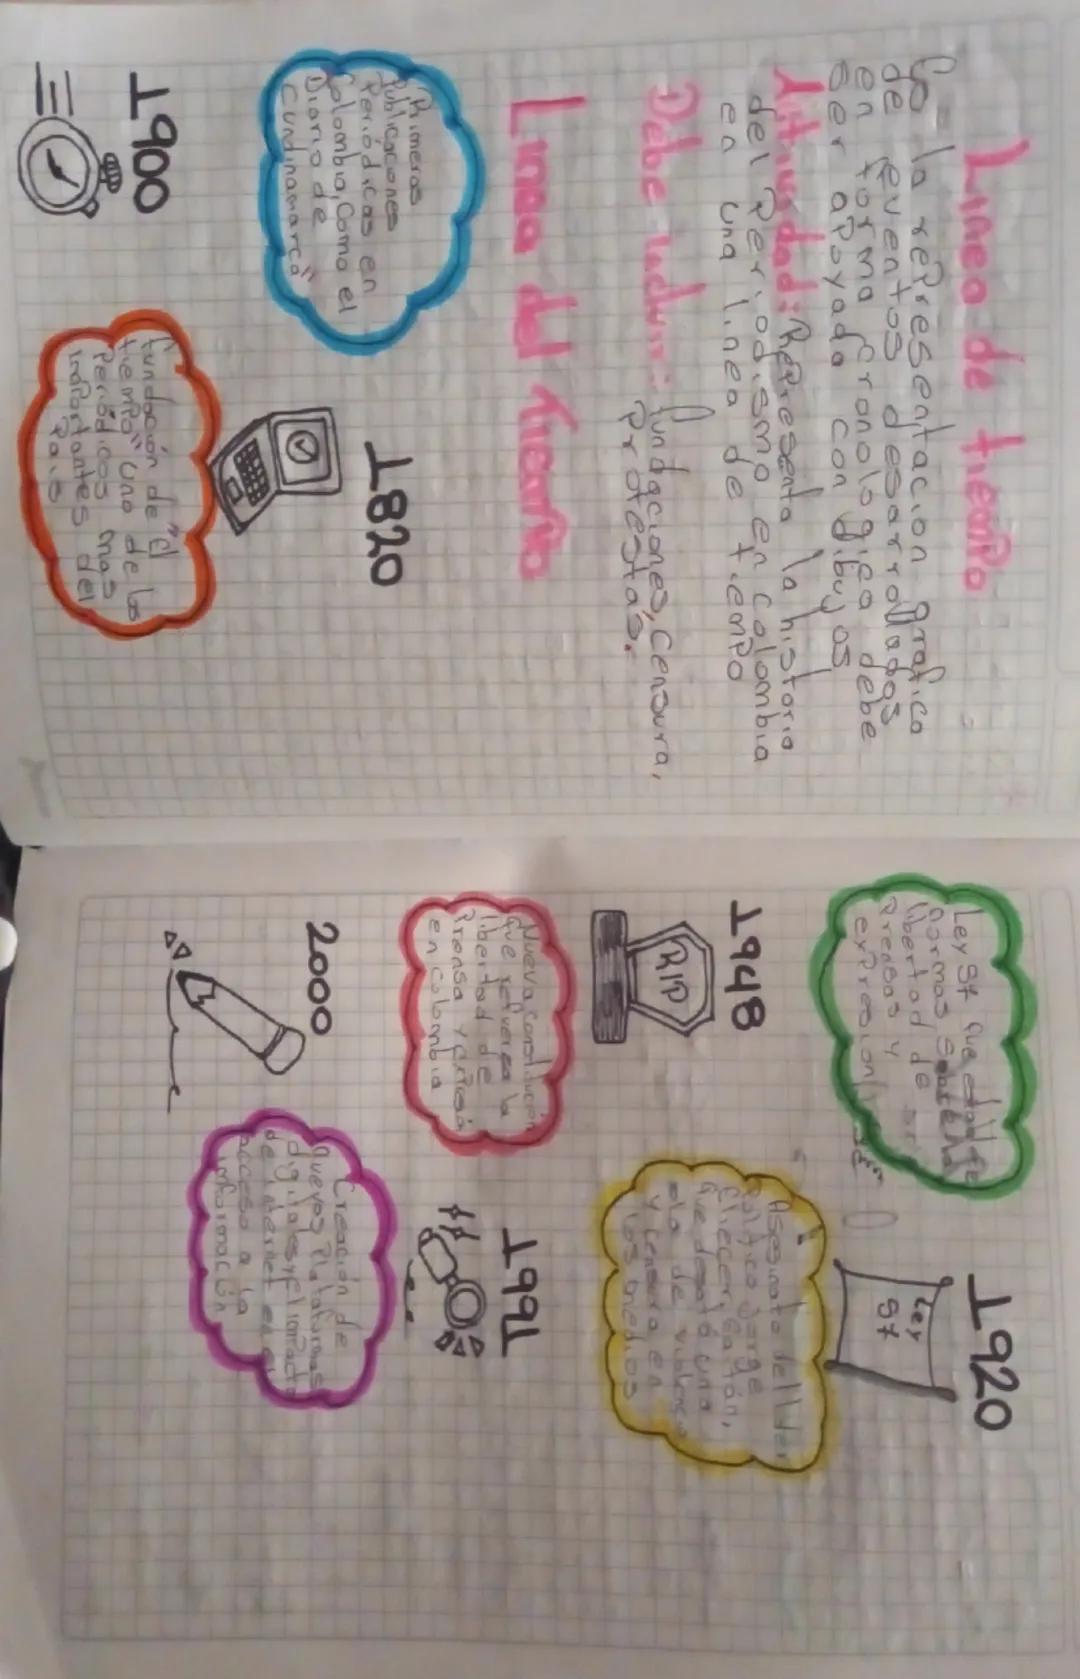 Linea de tiempo
Es la representacion grafica
de eventos desarrollados
en forma cronologica debe
ser apoyada con dibujos
Actividad: Representa la historia
del periodismo en Colombia
en una linea de tiempo
Debe Incluir: fundaciones, Censura,
Protestas.
Linea del tiempo
Primeras
Publicaciones
Periódicas en
Colombia, Como el
Diario de
Cundinamarca"
1820
1900
fundación de "el
tiempo" uno de los
periódicos mas
importantes del
Pais
1920
Ley 97
Ley 97 que
normas
libertad de
Prensas y
expresion
1948
RIP
Asesinato del lider
Politico Jorge
Eliecer, Gaitán,
que desató una
ola de violencia
y censura en
los medios
1991
Nueva constitución
que refuerza la
libertad de
Prensa y
en Colombia
2000
Creación de
nuevos Plataformas
digitales y el impacto
de internet en el
acceso a la
información